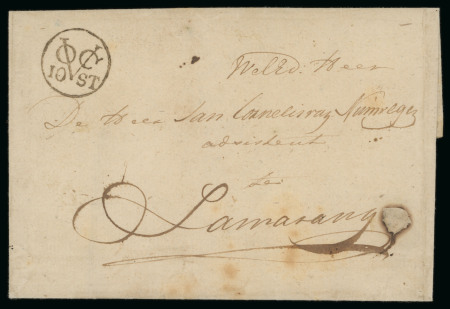 VOC
10 ST
WelEd: Heer
De Heer Jan Cornelisraz
adsistent
te
Samarang